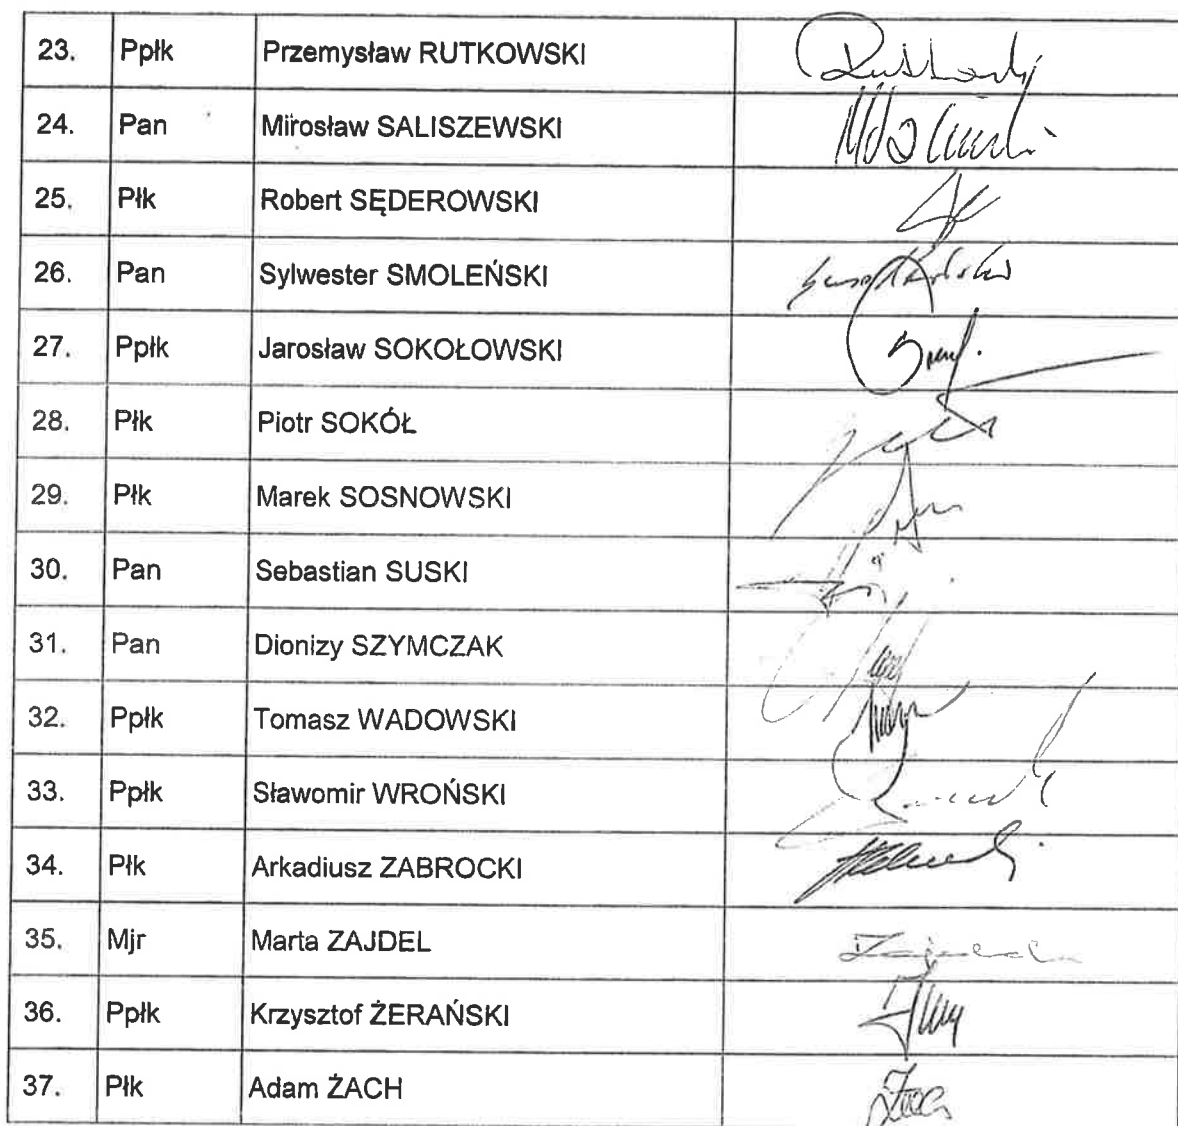 23. Ppłk Przemysław RUTKOWSKI
24. Pan Mirosław SALISZEWSKI
25. Płk Robert SĘDEROWSKI
26. Pan Sylwester SMOLEŃSKI
27. Ppłk Jarosław SOKOŁOWSKI
28. Płk Piotr SOKÓŁ
29. Płk Marek SOSNOWSKI
30. Pan Sebastian SUSKI
31. Pan Dionizy SZYMCZAK
32. Ppłk Tomasz WADOWSKI
33. Ppłk Sławomir WROŃSKI
34. Płk Arkadiusz ZABROCKI
35. Mjr Marta ZAJDEL
36. Ppłk Krzysztof ŻERAŃSKI
37. Płk Adam ŻACH